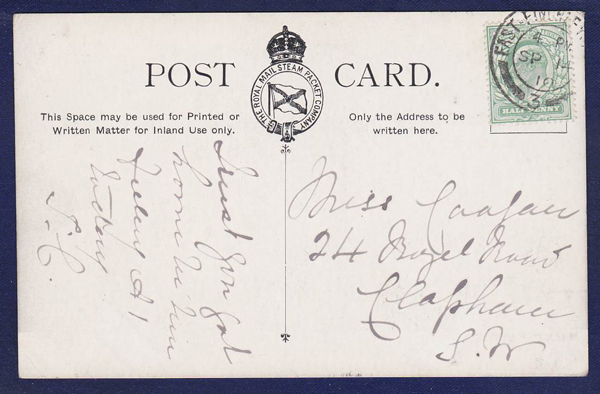 POST CARD.
THE ROYAL MAIL STEAM PACKET COMPANY
This Space may be used for Printed or
Written Matter for Inland Use only.
Only the Address to be
written here.
EAST FINCHLEY
SP
10
HALFPENNY
Trust you got
home in time
Feeling A1
today
Miss
24 Road
Clapham
S.W